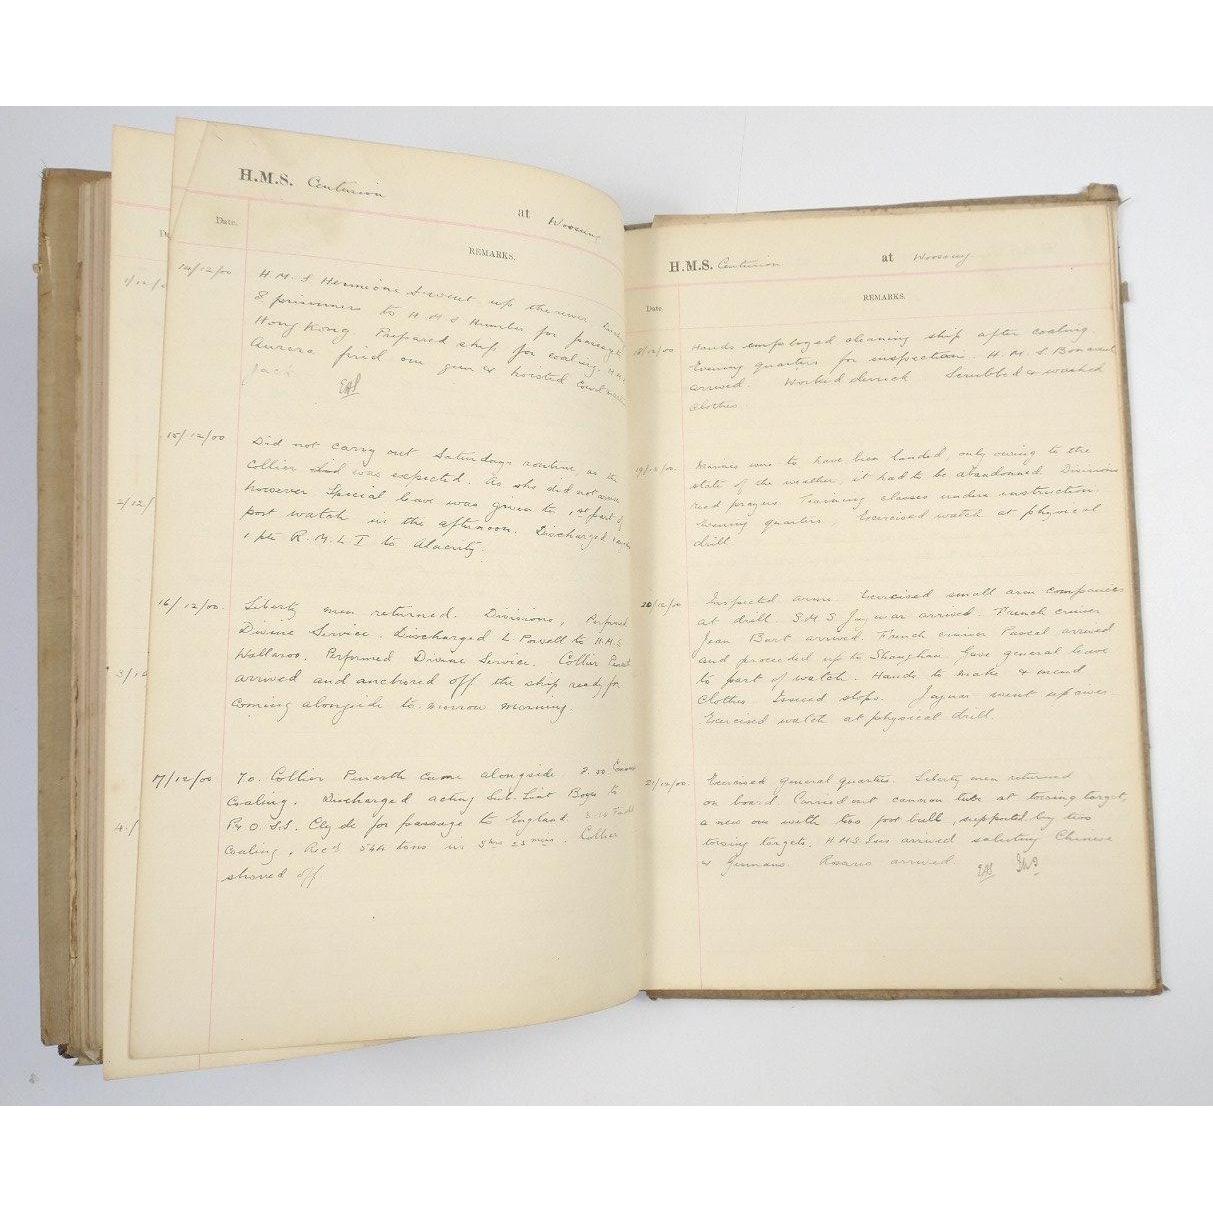 H.M.S. Centurion
at Woosung
Date.
REMARKS.
14/12/00
H.M.S Hermione went up the river
8 prisoners to H.M.S Humber for passage
Hong Kong. Prepared ship for coaling. H.M.S
Aurora fired one gun & hoisted
Jack
15/12/00
Did not carry out Saturdays routine, as the
Collier was expected. As she did not
however Special leave was given to 1st part of
port watch in the afternoon. Discharged
1 pte R.M.L.I to Alacrity.
16/12/00.
Liberty men returned. Divisions, Performed
Divine Service. Discharged L Powell to H.M.S
Wallaroo. Performed Divine Service. Collier
arrived and anchored off the ship ready for
coming alongside to-morrow morning.
17/12/00
7.0. Collier Penarth came alongside
Coaling. Discharged acting Sub. Lieut to
P & O. S.S. Clyde for passage to England
Coaling, Recd 544 tons in 5 hrs 25 mins. Collier
shoved off
1/12/
2/12/
3/12
4/
H.M.S. Centurion
at Woosung
Date.
REMARKS.
18/12/00
Hands employed cleaning ship after coaling.
Evening quarters for inspection. H.M.S. Bonaventure
arrived. Worked derrick Scrubbed & washed
clothes.
19/12/00.
Marines were to have been landed, only owing to the
state of the weather, it had to be abandoned. Divisions
read prayers. Training classes under instruction.
Evening quarters, Exercised watch at physical
drill
20/12/00
Inspected arms. Exercised small arm companies
at drill. S.M.S Jaguar arrived. French cruiser
Jean Bart arrived. French cruiser Pascal arrived
and proceeded up to Shanghai. Gave general leave
to part of watch. Hands to make & mend
Clothes. Issued slops. Jaguar went up river.
Exercised watch at physical drill.
21/12/00.
Exercised general quarters. Liberty men returned
on board. Carried out cannon tube at towing target,
a new one with two foot bull, supported by two
towing targets. H.M.S Isis arrived saluting Chinese
& Germans. Rosario arrived